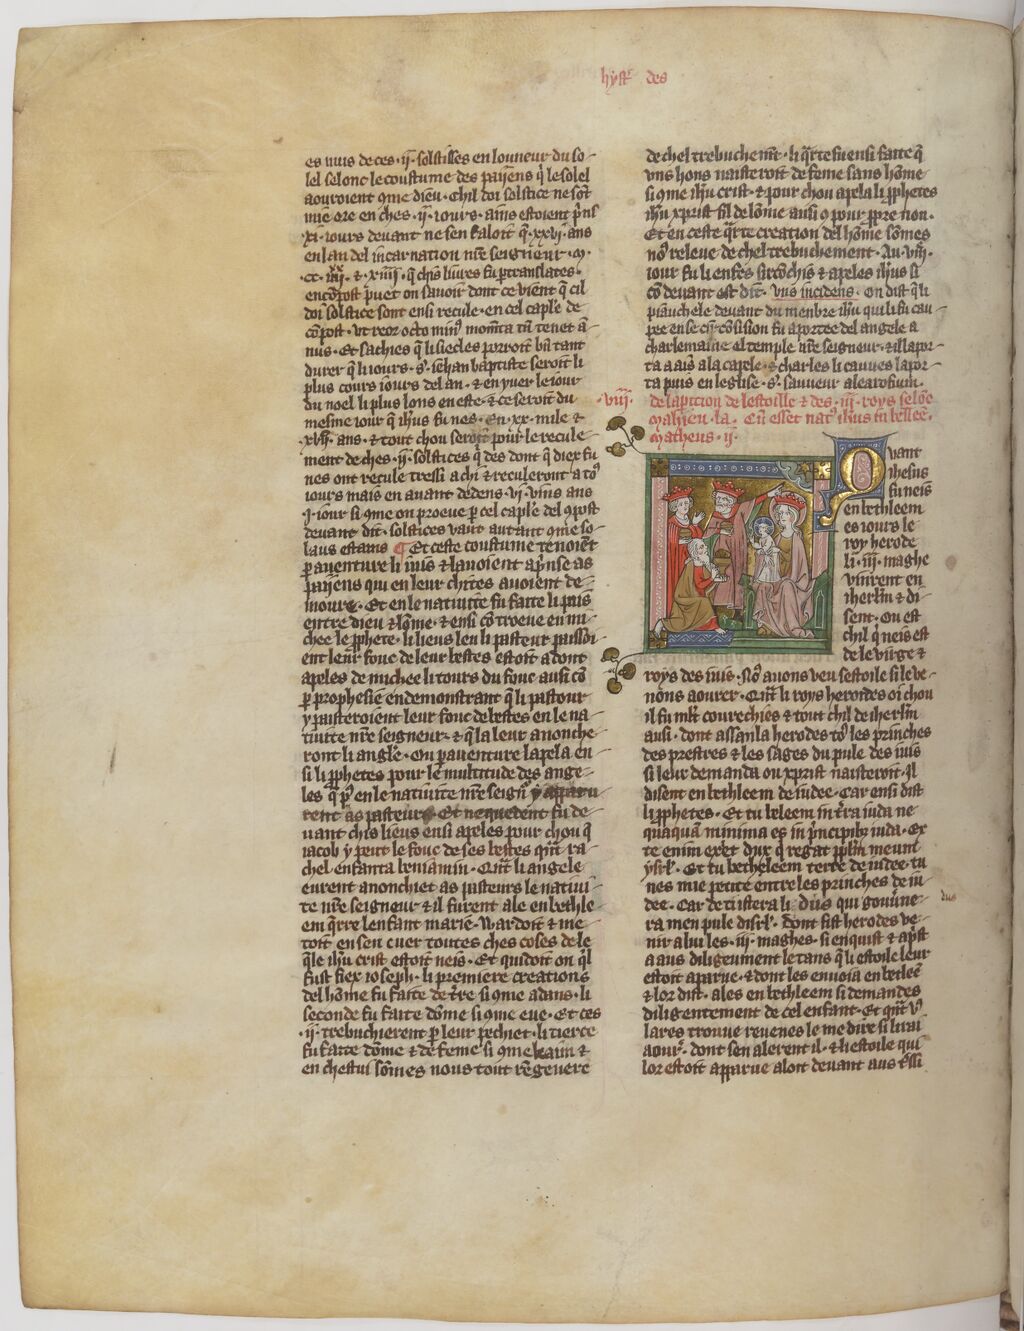 hyst' des
es nuis de ces .ij. solstisses en lonneur du so-
lel selonc le coustume des paijens q̃ le solel
aouroient 9me dieu. Chil doi solstice ne sõt
mie ore en ches .ij. iours. ains estoient p̃ns
.xi. iours deuant ne sen faloit q̃ .xxvj. ans
en lan del incarnation nr̃e seigneur .m.
q̃ chis liures fu p̃translates.
puet on sauoir dont ce vient q̃ cil
doi solstice sont ensi recule. en cel cap̃le de
cõpost. ut reor octo min' momẽta tenet ã-
nus. Et sachies q̃ li siecles porroit bñ tant
durer q̃ li iours .s'. iehan baptiste seroit li
plus cours iours del an. & en yuer le iour
du noel li plus lons en este. & ce seroit du
mesme iour q̃ ihũs fu nes. En .xx. mile &
.xvij. ans. & tout chou seroit pour le recule-
ment de ches .ij. solstices q̃ des dont q̃ diex fu
nes ont recule tressi a chi & reculeront a to9
iours mais en auant dedens .vj. vins ans
.j. iour si 9me on proeue p̃ cel cap̃le del 9post
deuant dit. solstices vaut autant 9me so-
laus estans ¶ Et ceste coustume tenoiẽt
p̃ auenture li iuis & lauoient ap̃nse as
paijens qui en leur chites auoient de-
moure. Et en le natiuite fu faite li pais
entre dieu & lõme. & ensi cõ troeue en mi-
chee le p̃phete. li lieus leu li pasteur paissoi-
ent leur fouc de leur bestes estoit adont
apeles de michee li tours du fouc ausi cõ
p̃ prophesie en demonstrant q̃ li pastour
y paisteroient leur fouc de bestes en le na-
tiuite nr̃e seigneur. & q̃ la leur anonche-
ront li angle. Ou p̃ auenture lapela en-
si li p̃phetes pour le multitude des ange-
les q̃ p' en le natiuite nr̃e seign' y apparu-
rent as pasteurs. Et nequedent fu de-
uant chis lieus ensi apeles pour chou q̃
iacob y peut le fouc de ses bestes q̃nt ra-
chel enfanta beniamin. Qñt li angele
eurent anonchiet as pasteurs le natiui-
te nr̃e seigneur & il furent ale en bethle-
em q̃rre lenfant marie. Wardoit & me-
toit en sen cuer toutes ches coses de le-
q̃le ihũ crist estoit neis. Et quidoit on q̃l
fust fiex ioseph. li premiere creations
del hõme fu faite de tr̃re si 9me adans. li
seconde fu faite dõme si 9me eue. Et ces
.ij. trebuchierent p̃ leur pechiet. li tierce
fu faite dõme & de feme si 9me &
en chestui sõmes nous tout rẽgenere
de chel trebuchemẽt. li q̃rte fu ensi faite q̃
uns hons naisteroit de feme sans hõme
si 9me ihũ crist. & pour chou apela li p̃phetes
ihũ xp̃rist fil de lõme ausi 9 pour non.
Et en ceste q̃rte creation del hõme sõmes
no' releue de chel trebuchement. Au .viij.
iour fu li enfes sirchõchis & apeles ihũs si
cõ deuant est dit. vns incidens. On dist q̃ li
piauchele deuant du menbre ihũ qui li fu cau-
pee en se circõsision fu aportee del angele a
charlemaine el temple nr̃e seigneur. & il lapor-
ta a ais a la capele. & charles li cauues lapor-
ta puis en leglise .s'. sauueur
.viij. de laparition de lestoille & des .iij. roys selõc
mahieu la. Cũ esset nat' ihũs in bethlee.
Matheus .ij.
Quant
ihesus
fu neis
en bethleem
es iours le
roy herode
li .iij. maghe
vinrent en
iherlm̃ & di-
sent. Ou est
chil q̃ neis est
de le virge &
roys des iuis. No' auons veu sestoile si le ve-
nons aourer. Qñt li roys herodes oi chou
il fu mlt̃ courechies & tout chil de iherlm̃
ausi. dont assanla herodes to' les princhs
des prestres & les sages du pule des iuis
si leur demanda ou xp̃rist naisteroit. Il
disent en bethleem de iudee. Car ensi dist
li p̃phetes. Et tu bethleem in tr̃ra iuda ne-
quaquã minima es in p̃ncipib' iuda. Ex
te enim exiet dux q̃ regat pp̃lm meum
isr̃l. Et tu bethleem terre de iudee. tu
nes mie petite entre les princhs de iu-
dee. Car de ti istera li dus qui gouu̾ne-
dus
ra men pule disr̃l. dont fist herodes ve-
nir a lui les .iij. maghes. si enquist & ap̃st
a aus diligeument le tans q̃ li estoile leur
estoit aparue. & dont les enuoia en betleẽ
& lor dist. ales en bethleem si demandes
diligentement de cel enfant. Et qñt v'
lares trouue reuenes le me dire si lirai
aour'. dont sen alerent il. & li estoile qui
lor estoit apparue aloit deuant aus t̃ssi